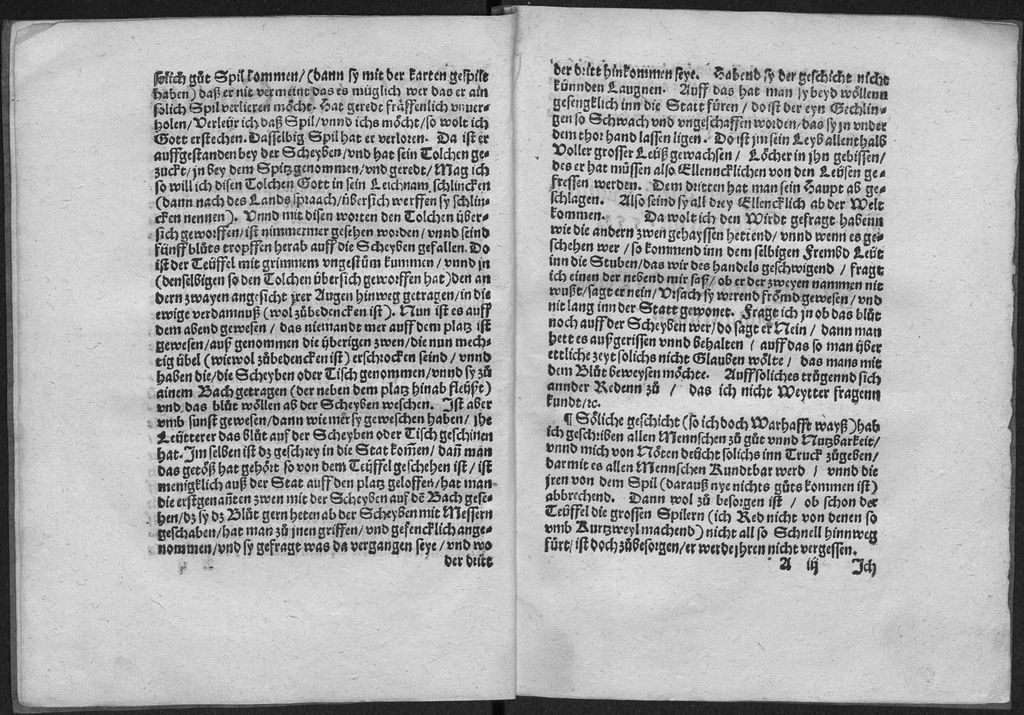 solich güt Spil kommen/ (dann sy mit der karten gespilt
haben) daß er nit vermeint das es müglich wer das er ain
solich Spil verlieren möcht. Hat geredt fräffenlich vnuer-
holen/ Verleür ich daß Spil/ vnnd ichs möcht/ so wolt ich
Gott erstechen. Dasselbig Spil hat er verloren. Da ist er
auffgestanden bey der Scheyben/ vnd hat sein Tolchen ge-
zuckt/ jn bey dem Spitz genommen/ vnd geredt/ Mag ich
so will ich disen Tolchen Gott in sein Leichnam schlincken
(dann nach des Lands spraach/ übersich werffen sy schlin-
cken nennen). Vnnd mit disen worten den Tolchen über-
sich geworffen/ ist nimmermer gesehen worden/ vnnd seind
fünff blüts tropffen herab auff die Scheyben gefallen. Do
ist der Teüffel mit grimmem vngestüm kummen/ vnnd jn
(denselbigen so den Tolchen übersich geworffen hat) den an
dern zwayen angesicht jrer Augen hinweg getragen/ in die
ewige verdamnuß (wol zübedencken ist). Nun ist es auff
dem abend gewesen/ das niemandt mer auff dem platz ist
gewesen/ auß genommen die überigen zwen/ die nun mech-
tig übel (wie wol zübedencken ist) erschrocken seind/ vnnd
haben die/ die Scheyben oder Tisch genommen/ vnnd sy zü
ainem Bach getragen (der neben dem platz hinab fleüßt)
vnd das blüt wöllen ab der Scheyben weschen. Ist aber
vmb sunst gewesen/ dann wie mer sy geweschen haben/ jhe
Leütterer das blüt auf der Scheyben oder Tisch geschinen
hat. Im selben ist dz geschrey in die Stat kom̃en/ dan̄ man
das getöß hat gehört so von dem Teüffel geschehen ist/ ist
menigklich auß der Stat auff den platz geloffen/ hat man
die erstgenan̄ten zwen mit der Scheyben auf dē Bach gese-
hen/ dz sy dz Blüt gern heten ab der Scheyben mit Messern
geschaben/ hat man zü jnen griffen/ vnd gefencklich ange-
nommen/ vnd sy gefragt was da vergangen seye/ vnd wo
der dritt
der dritt hin kommen seye. Habend sy der geschicht nicht
künnden Laugnen. Auff das hat man sy beyd wöllenn
gefengklich inn die Statt füren/ do ist der eyn Gechlin-
gen so Schwach vnd vngeschaffen worden/ das sy jn vnder
dem thor hand lassen ligen. Do ist jm sein Leyb allenthalb
Voller grosser Leüß gewachsen/ Löcher in jhn gebissen/
des er hat müssen also Ellenncklichen von den Leüsen ge-
fressen werden. Dem dritten hat man sein Haupt ab ge-
schlagen. Also seind sy all drey Ellencklich ab der Welt
kommen. Da wolt ich den Wirdt gefragt habenn
wie die andern zwen gehayssen hettend/ vnnd wenn es ge-
schehen wer/ so kommend inn dem selbigen Frembd Leüt
inn die Stuben/ das wir des handels geschwigend/ fragt
ich einen der nebend mir saß/ ob er der zweyen nammen nit
wußt/ sagt er nein/ Vrsach sy werend frömd gewesen/ vnd
nit lang inn der Statt gewonet. Fragt ich jn ob das blüt
noch auff der Scheyben wer/ do sagt er Nein/ dann man
hett es außgerissen vnnd behalten/ auff das so man über
ettliche zeyt solichs nicht Glauben wölte/ das mans mit
dem Blüt beweysen möchte. Auff soliches trügennd sich
annder Redenn zü/ das ich nicht Weytter fragenn
kundt/ ꝛc.
¶ Söliche geschicht (so ich doch Warhafft wayß) hab
ich geschriben allen Mennschen zü güt vnnd Nutzbarkeit/
vnnd mich von Nöten deücht solichs inn Truck zügeben/
darmit es allen Mennschen Kundtbar werd/ vnnd die
jren von dem Spil (darauß nye nichts güts kommen ist)
abbrechend. Dann wol zü besorgen ist/ ob schon der
Teüffel die grossen Spilern (ich Red nicht von denen so
vmb Kurtzweyl machend) nicht all so Schnell hinnweg
fürt/ ist doch zübesorgen/ er werde jhren nicht vergessen.
A iij Ich